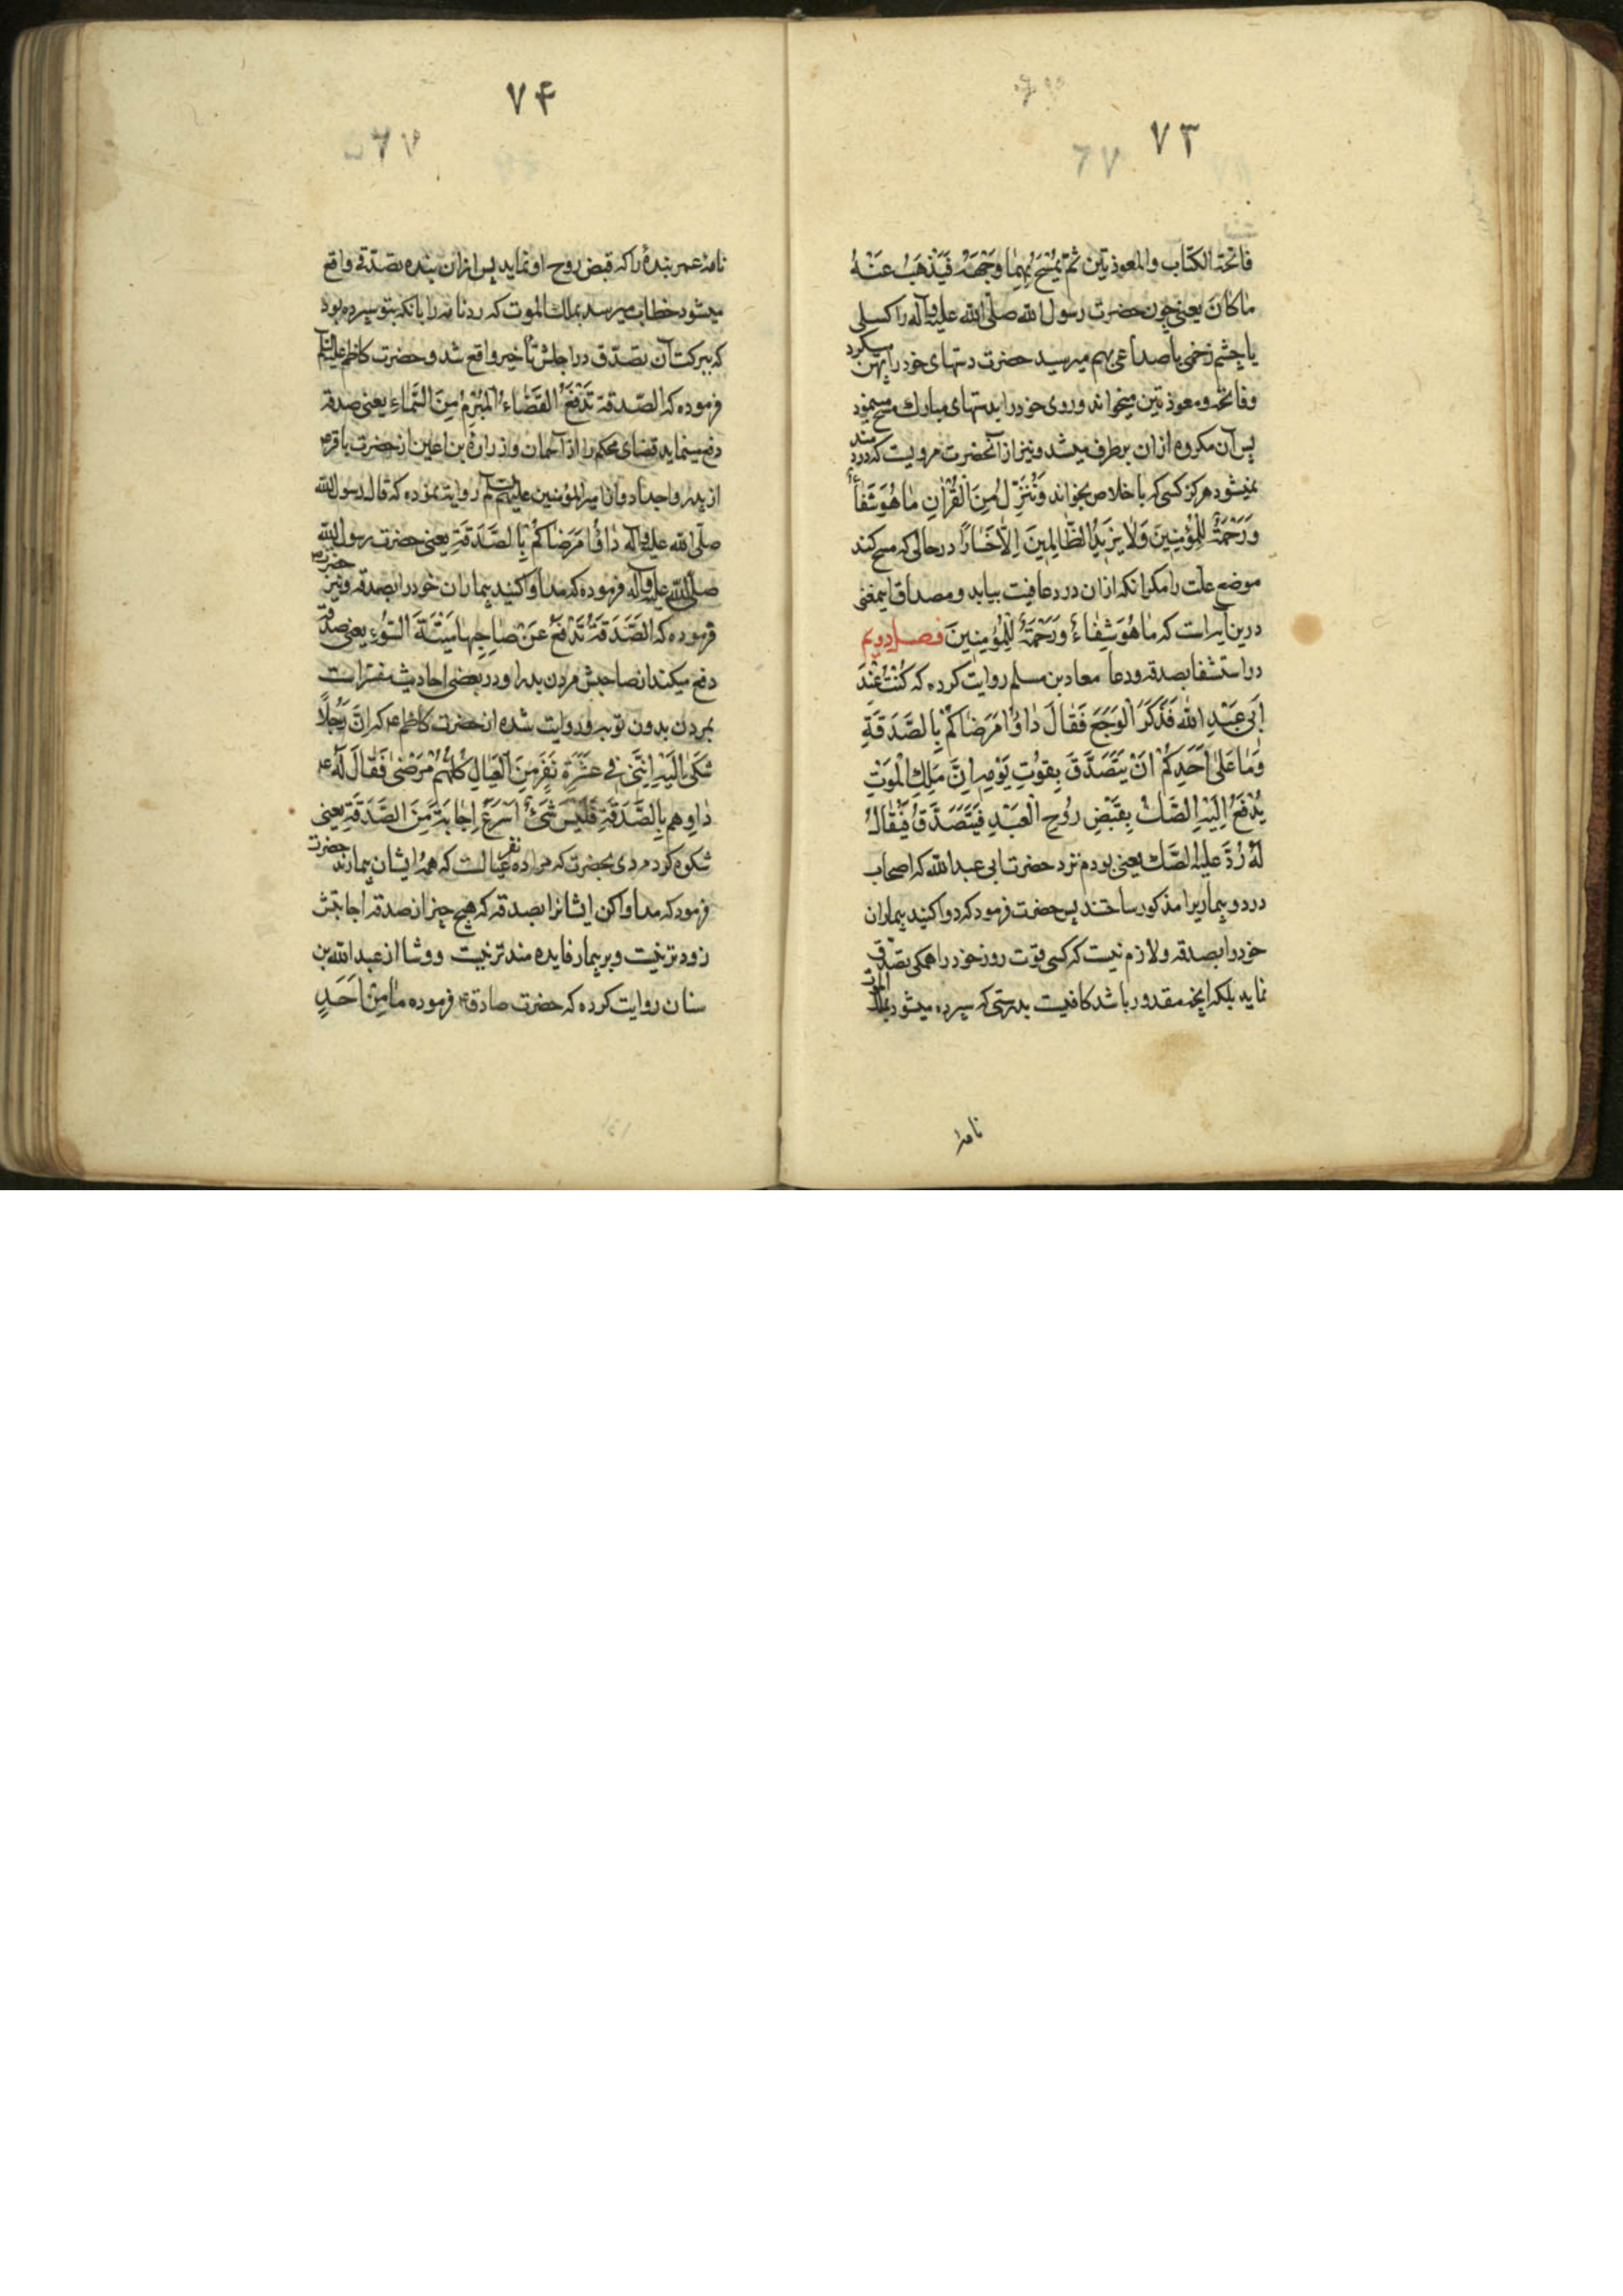 ۷۳
فاتحة الکتاب والمعوذتین ثم یمسح بهما وجهه فیذهب عنه
ما کان یعنی چون حضرت رسول الله صلی الله علیه وآله را کسلی
یا چشم زخمی یا صداعی بهم میرسید حضرت دستهای خود را پهن میکرد
وفاتحه ومعوذتین میخواند وروی خود را بدستهای مبارک مسح مینمود
پس آن مکروه ازان برطرف میشد ونیز از آنحضرت مرویست که دردمند
نمیشود هرگز کسی که باخلاص بخواند وَنُنَزِّلُ مِنَ الْقُرْآنِ مَا هُوَ شِفَاءٌ
وَرَحْمَةٌ لِلْمُؤْمِنِینَ وَلَا یَزِیدُ الظَّالِمِینَ اِلَّا خَسَارًا درحالی که مسح کند
موضع علت را مکر انکه ازان درد عافیت بیابد ومصداق اینمعنی
درین آیه است که مَا هُوَ شِفَاءٌ وَرَحْمَةٌ لِلْمُؤْمِنِینَ فصل دویم
در استشفا بصدقه ودعا معاد بن مسلم روایت کرده که کُنْتُ عِنْدَ
اَبِی عَبْدِ اللهِ فَذَکَرَ الْوَجَعَ فَقَالَ دَاوُوا مَرْضَاکُمْ بِالصَّدَقَةِ
وَمَا عَلَی اَحَدِکُمْ اَنْ یَتَصَدَّقَ بِقُوتِ یَوْمِهِ اِنَّ مَلَکَ الْمَوْتِ
یُدْفَعُ اِلَیْهِ الصَّکُّ بِقَبْضِ رُوحِ الْعَبْدِ فَیَتَصَدَّقُ فَیُقَالُ
لَهُ رُدَّ عَلَیْهِ الصَّکَّ یعنی بودم نزد حضرت ابی عبدالله که اصحاب
درد وبیماریرا مذکور ساختند پس حضرت فرمود که دوا کنید بیماران
خود را بصدقه ولازم نیست که کسی قوت روز خود را همکی تصدق
نماید بلکه انچه مقدور باشد کافیست بدرستی که سپرده میشود بملک الموت
نامهٔ
۷۴
نامهٔ عمر بندهٔ را که قبض روح او نماید پس ازان بنده تصدقی واقع
میشود خطاب میرسد بملک الموت که رد نامه را بانکه بتو سپرده بود
که ببرکت آن تصدق در اجلش تأخیر واقع شد و حضرت کاظم علیه السلام
فرموده که الصّدقة تَدْفَعُ القَضَاءَ الْمُبْرَمَ مِنَ السَّمَاءِ یعنی صدقه
دفع مینماید قضای محکم را از آسمان و زرارة بن اعین از حضرت باقر ع
از پدر واجداد وان امیرالمؤمنین علیهم السلام روایت نموده که قال رسول الله
صلی الله علیه وآله دَاوُوا مَرْضَاکُمْ بِالصَّدَقَةِ یعنی حضرت رسول الله
صلی الله علیه وآله فرموده که مداوا کنید بیماران خود را بصدقه ونیز حضرت ص
فرموده که الصَّدَقَةُ تَدْفَعُ عَنْ صَاحِبِهَا مِیتَةَ السُّوءِ یعنی صدقه
دفع میکند از صاحبش مردن بد را ودر بعضی احادیث مفسّر است
بمردن بدون توبه و روایت شده از حضرت کاظم ع که اِنَّ رَجُلًا
شَکَی اِلَیْهِ اِنَّنِی فِی عَشَرَةِ نَفَرٍ مِنَ الْعِیَالِ کُلُّهُمْ مَرْضَی فَقَالَ لَهُ ع
دَاوِهِم بِالصَّدَقَةِ فَلَیْسَ شَیْءٌ اَسْرَعَ اِجَابَةً مِنَ الصَّدَقَةِ یعنی
شکوه کرد مردی بحضرت که مرا ده نفر عیالست که همهٔ ایشان بیمارند حضرت
فرمود که مداوا کن ایشانرا بصدقه که هیچ چیز از صدقه اجابتش
زودتر نیست وبر بیمار فایده مندتر نیست ووشا از عبدالله بن
سنان روایت کرده که حضرت صادق ع فرموده مَا مِنْ اَحَدٍ